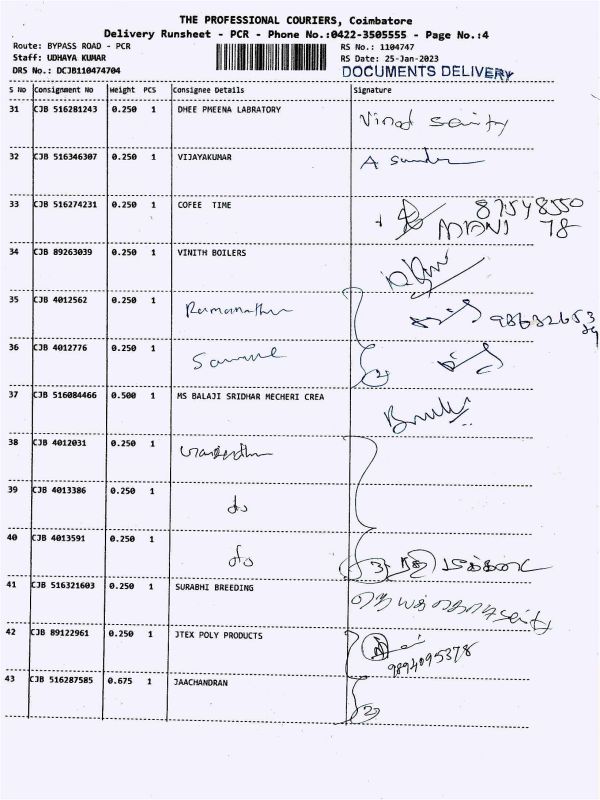 THE PROFESSIONAL COURIERS, Coimbatore
Delivery Runsheet - PCR - Phone No.:0422-3505555 - Page No.:4
Route: BYPASS ROAD - PCR RS No.: 1104747
Staff: UDHAYA KUMAR RS Date: 25-Jan-2023
DRS No.: DCJB110474704 DOCUMENTS DELIVERY
S No Consignment No Weight PCS Consignee Details Signature
31 CJB 516281243 0.250 1 DHEE PMEENA LABRATORY
32 CJB 516346307 0.250 1 VIJAYAKUMAR
33 CJB 516274231 0.250 1 COFEE TIME 87548550
MANI 78
34 CJB 89263039 0.250 1 VINITH BOILERS
35 CJB 4012562 0.250 1
36 CJB 4012776 0.250 1
37 CJB 516084466 0.500 1 MS BALAJI SRIDHAR MECHERI CREA
38 CJB 4012031 0.250 1
39 CJB 4013386 0.250 1 do
40 CJB 4013591 0.250 1 do
41 CJB 516321603 0.250 1 SURABHI BREEDING
42 CJB 89122961 0.250 1 JTEX POLY PRODUCTS
9894095378
43 CJB 516287585 0.675 1 JAACHANDRAN